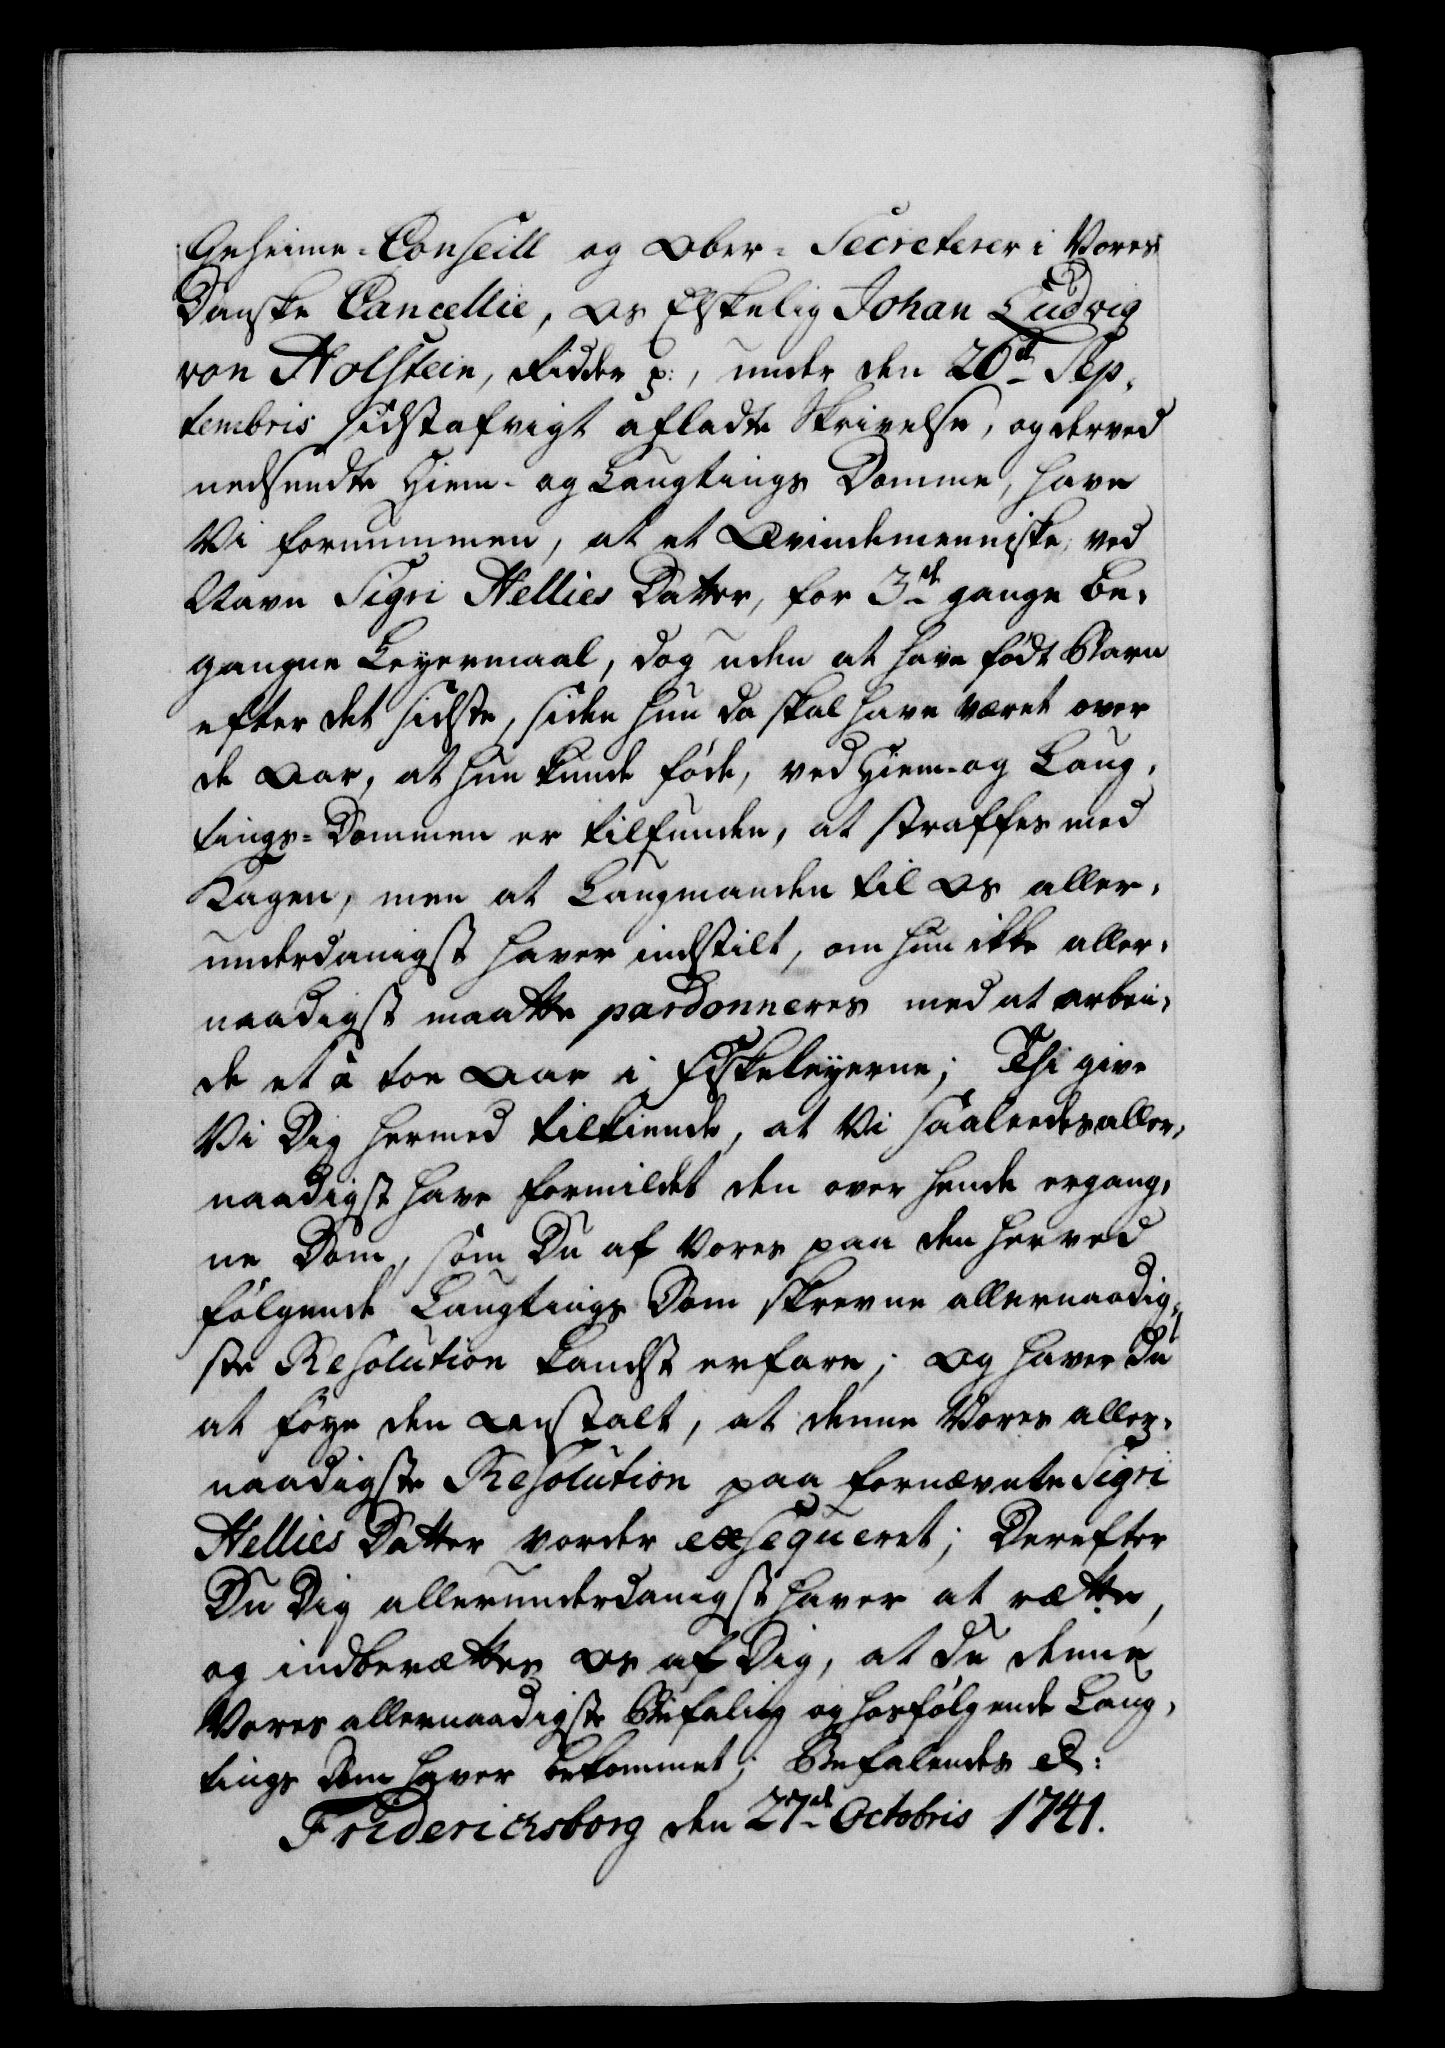 Geheime-Conseill og Ober-Secreterer i Vores
Danske Cancellie, Os Elskelig Johan Ludvig
von Holstein, Ridder p:, under den 26de Sep-
tembris sidstafvigt afladte Skrivelse, og derved
nedsendte Hiem- og Laugtings Domme, have
Vi fornummen, at et Qvindemenniske, ved
Navn Sigri Hellies Datter, for 3de gange be-
gangne Leyermaal, dog uden at have födt Barn
efter det sidste, siden hun da skal have været over
de Aar, at hun kunde föde, ved Hiem- og Laug-
tings-Dommen er tilfunden, at straffes med
Kagen, men at Laugmanden til Os aller-
underdanigst haver indstilt, om hun ikke aller-
naadigst maatte pardonneres med at arbei-
de et à toe Aar i Fiskeleyerne; Thi give
Vi Dig hermed tilkiende, at Vi saaledes aller-
naadigst have formildet den over hende ergang-
ne Dom, som Du af Vores paa den herved
fölgende Laugtings Dom skrevne allernaadig-
ste Resolution kandst erfare; Og haver Du
at föye den Anstalt, at denne Vores aller-
naadigste Resolution paa fornævnte Sigri
Hellies Datter vorder exsequeret; Derefter
Du Dig allerunderdanigst haver at rætte,
og indberættes Os af Dig, at Du denne
Vores allernaadigste Befaling og hosfölgende Laug-
tings Dom haver bekommet; Befalendes &:
Friderichsborg den 27de Octobris 1741.